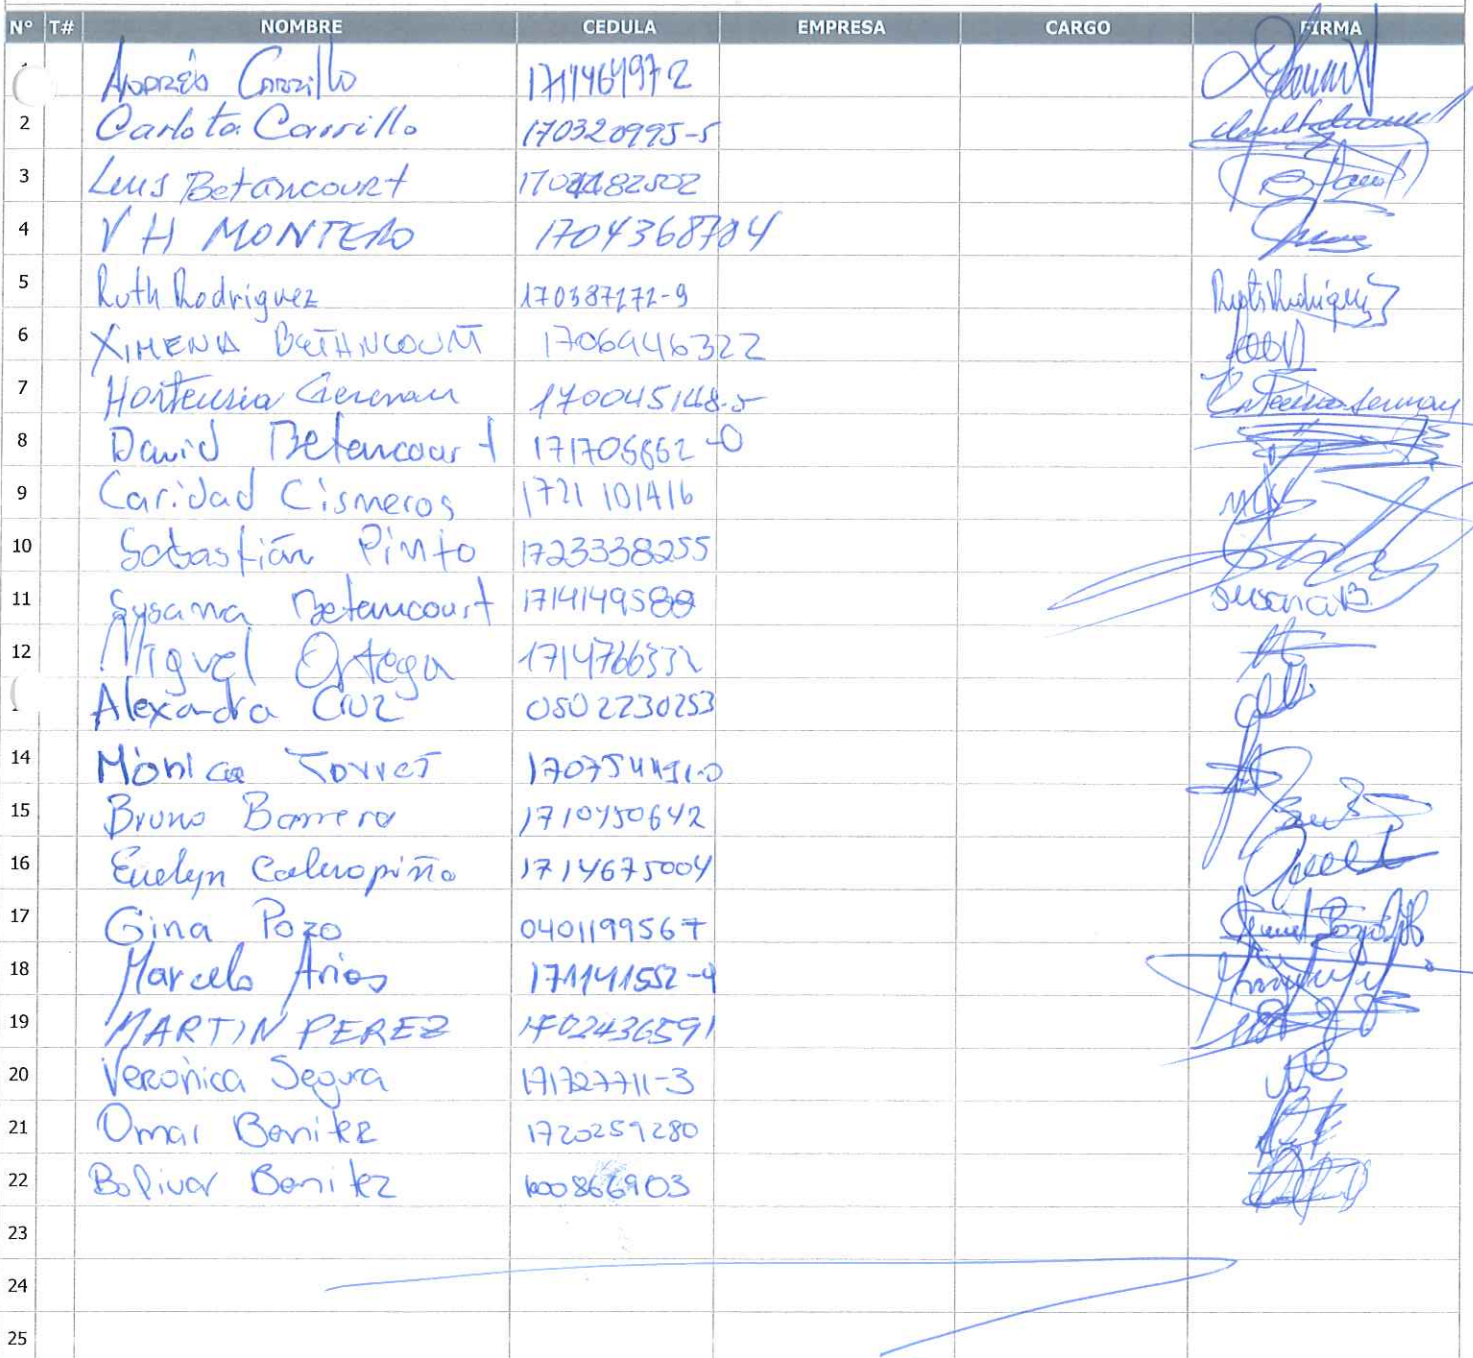 N° T# NOMBRE CEDULA EMPRESA CARGO FIRMA
Andrés Carrillo 1711464972
2 Carlota Carrillo 170320995-5
3 Luis Betancourt
4 V H MONTERO 1704368704
5 Ruth Rodriguez 170387272-9
6 XIMENA BETANCOURT 1706946322
7 Hortensia German 170045148-5
8 David Betancourt 171706662-0
9 Caridad Cisneros 1721101416
10 Sebastián Pinto 1723338255
11 Susana Betancourt 1714149588 SusanaB
12 Miguel Ortega 1714766332
Alexandra Cruz 0502230253
14 Mónica Torres 170754491-0
15 Bruno Barrera 1710450642
16 Evelyn Caluropiña 1714675004
17 Gina Pozo 0401199567
18 Marcelo Arias 171141552-4
19 MARTIN PEREZ 1702436591
20 Verónica Segura 171727711-3
21 Omar Benitez 1720259280
22 Bolivar Benitez 1000866903
23
24
25